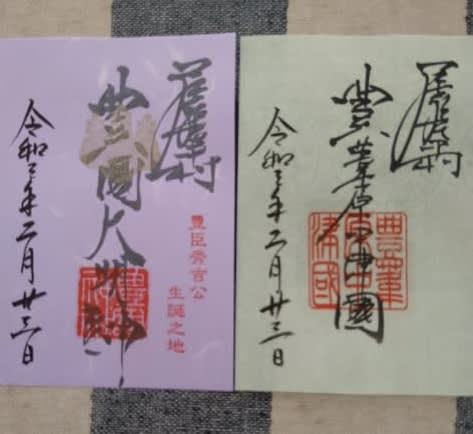 豊葦原中津國
豊葦原中津國
令和三年二月廿三日
豊臣秀吉公
生誕之地
豊國大明神
令和三年二月廿三日